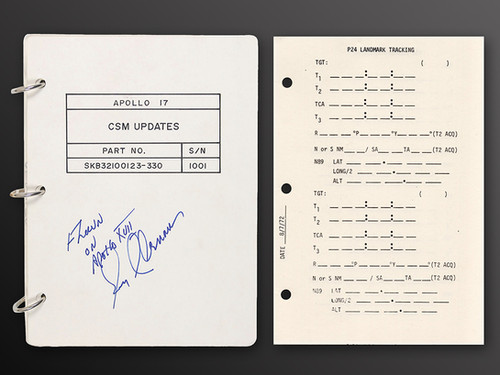 APOLLO 17
CSM UPDATES
PART NO. S/N
SKB32100123-330 1001
FLOWN
ON
APOLLO XVII
P24 LANDMARK TRACKING
TGT: ( )
T1 __ __ __:__ __:__ __
T2 __ __ __:__ __:__ __
TCA __ __ __:__ __:__ __
T3 __ __ __:__ __:__ __
R______°P______°Y______°(T2 ACQ)
N or S NM____/ SA____TA____(T2 ACQ)
N89 LAT __ __•__ __ __
LONG/2 __ __•__ __ __
ALT __ __ __•__ __
TGT: ( )
T1 __ __ __:__ __:__ __
T2 __ __ __:__ __:__ __
TCA __ __ __:__ __:__ __
T3 __ __ __:__ __:__ __
R______°P______°Y______°(T2 ACQ)
N or S NM____/ SA____TA____(T2 ACQ)
N89 LAT __ __•__ __ __
LONG/2 __ __•__ __ __
ALT __ __ __•__ __
DATE 8/7/72